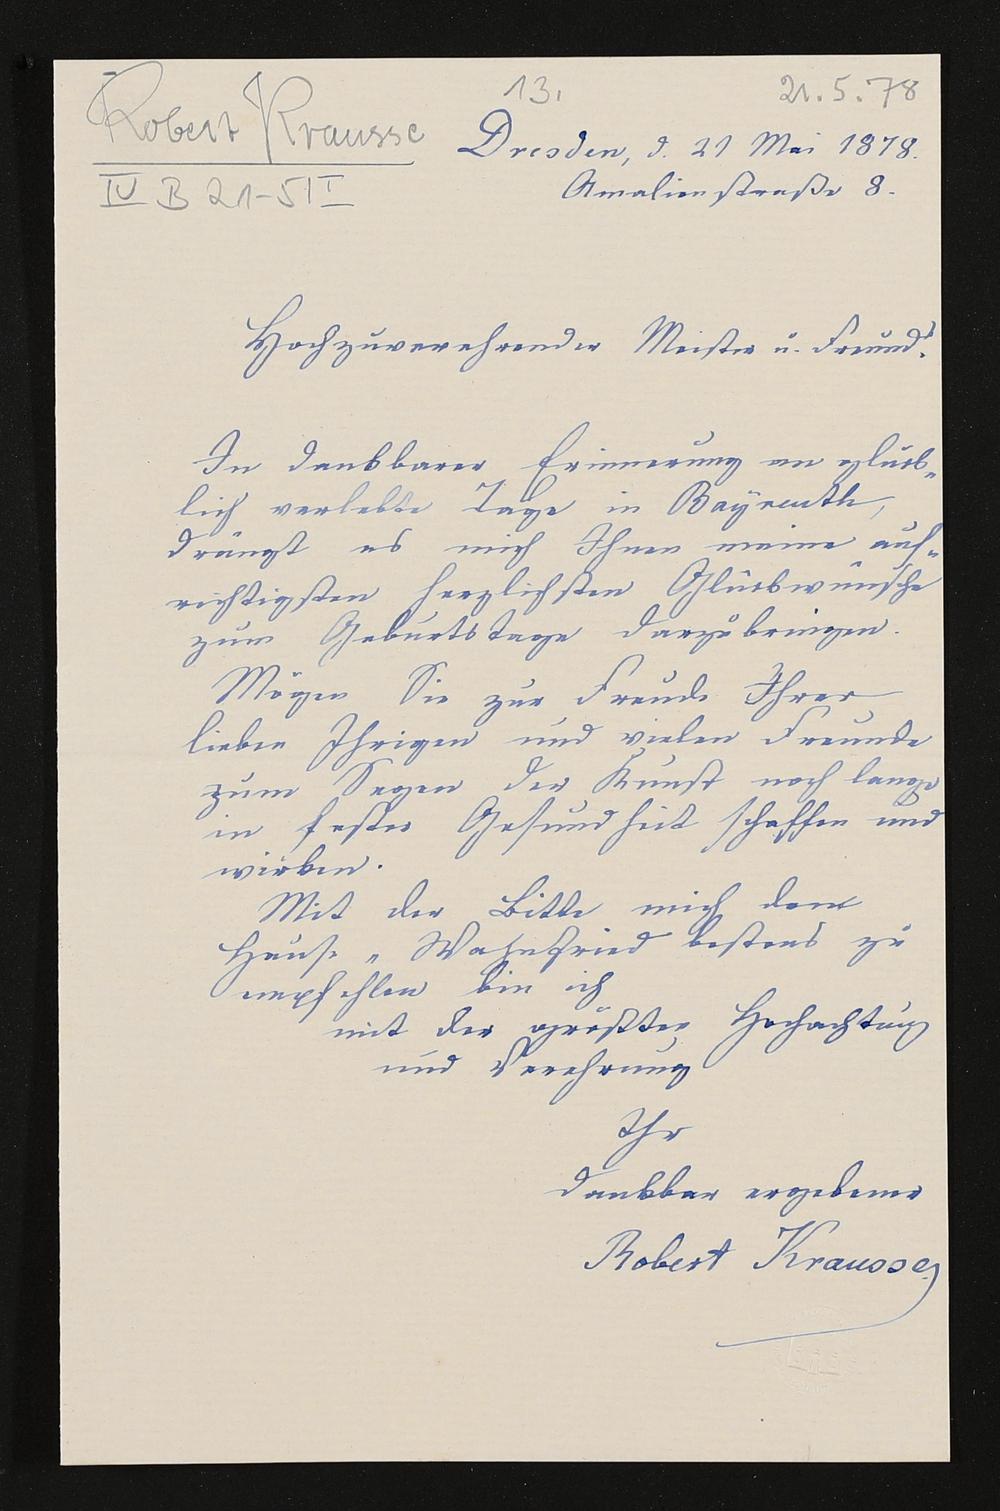 Robert Krausse
13.
21.5.78
IV B 21-5II
Dresden, d. 21 Mai 1878.
Amalienstraße 8.
Hochzuverehrender Meister u. Freund!
In dankbarer Erinnerung an glück-
lich verlebte Tage in Bayreuth,
drängt es mich Ihnen meine auf-
richtigsten herzlichsten Glückwünsche
zum Geburtstage darzubringen.
Mögen Sie zur Freude Ihrer
lieben Ihrigen und vielen Freunde
zum Segen der Kunst noch lange
in fester Gesundheit schaffen und
wirken.
Mit der Bitte mich dem
Hause „Wahnfried bestens zu
empfehlen bin ich
mit der größten Hochachtung
und Verehrung
Ihr
dankbar ergebener
Robert Krausse